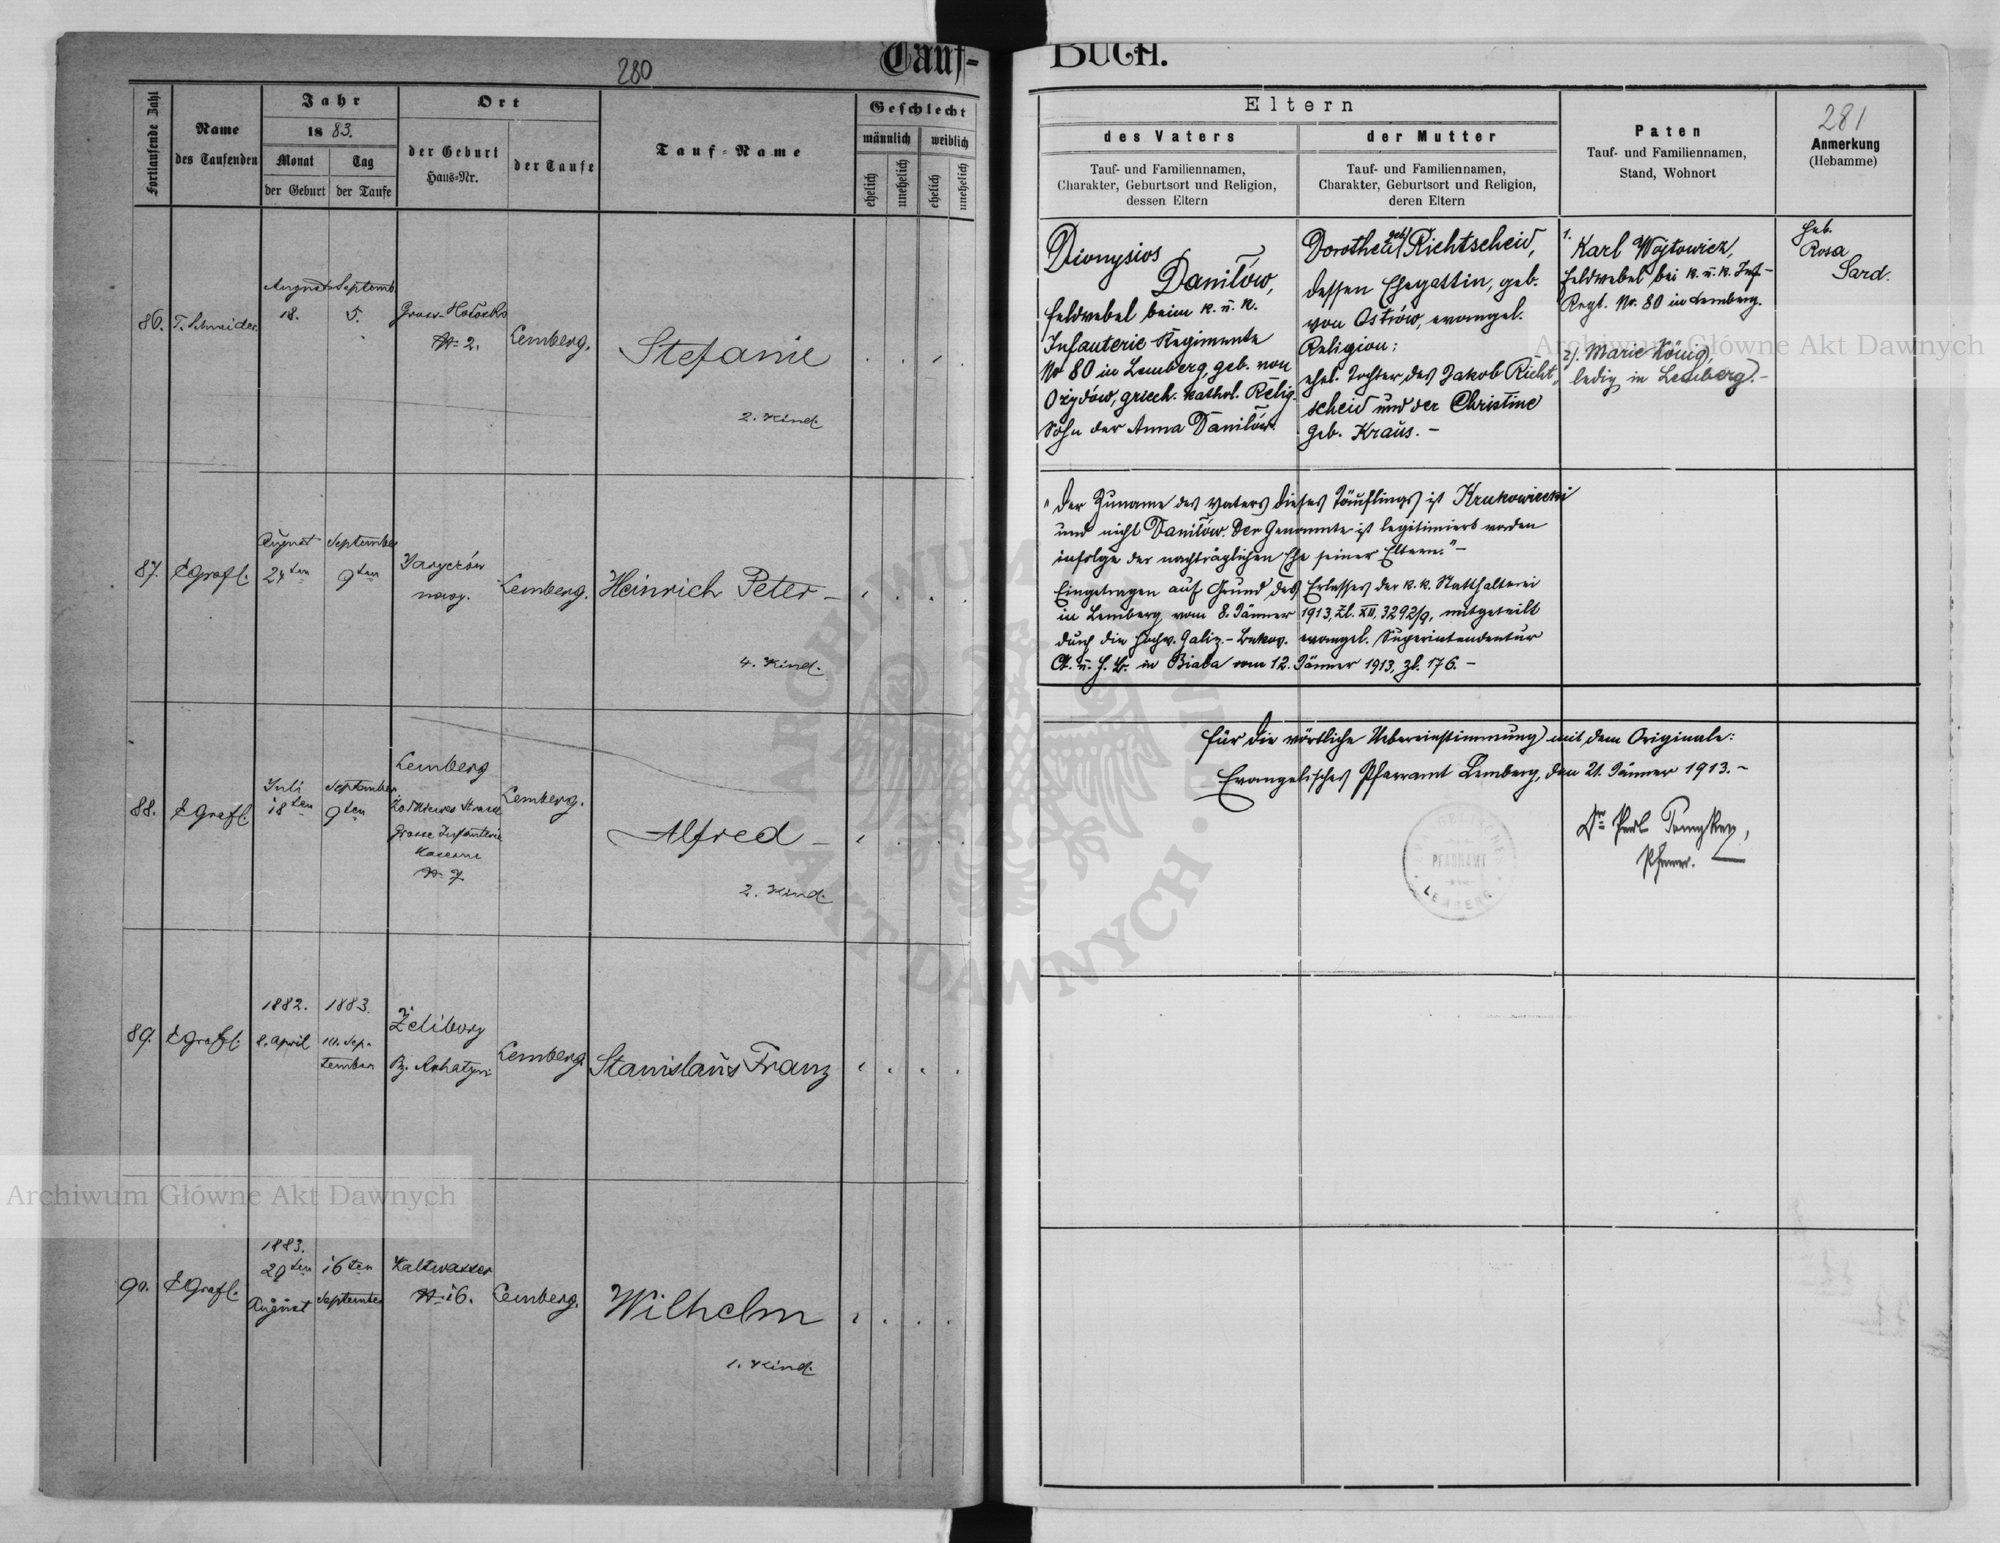 280
Tauf-
Fortlaufende Zahl
Name
des Taufenden
Jahr
1883.
Monat
der Geburt
Tag
der Taufe
Ort
der Geburt
Haus-Nr.
der Taufe
Tauf-Name
Geschlecht
männlich
weiblich
ehelich
unehelich
ehelich
unehelich
86.
T. Schneider
August
18.
Septemb.
5.
Gross-Hołosko
№ 2.
Lemberg.
Stefanie
2. Kind.
87.
E Grafl.
August
24ten
September
9ten
Jaryczów
nowy.
Lemberg.
Heinrich Peter –
4. Kind.
88.
E Grafl.
Juli
18ten
September
9ten
Lemberg
Grosse Infanterie
Kaserne
№ 7
Lemberg.
Alfred –
2. Kind.
89.
E Grafl.
1882.
8. April
1883.
10. Sep-
tember
Żelibory
Bz. Rohatyn
Lemberg.
Stanislaus Franz
90.
E Grafl.
1883.
29ten
August
16ten
September
Kaltwasser
№ 16.
Lemberg.
Wilhelm
1. Kind.
BUCH.
281
Eltern
des Vaters
Tauf- und Familiennamen,
Charakter, Geburtsort und Religion,
dessen Eltern
der Mutter
Tauf- und Familiennamen,
Charakter, Geburtsort und Religion,
deren Eltern
Paten
Tauf- und Familiennamen,
Stand, Wohnort
Anmerkung
(Hebamme)
Dionysios
Daniłów,
Feldwebel beim k. u. k.
Infanterie-Regimente
No 80 in Lemberg, geb. von
Ożydów, griech. kathol. Relig.
Sohn der Anna Daniłów.
Dorothea geb. Richtscheid,
dessen Ehegattin, geb.
von Ostrów, evangel.
Religion;
ehel. Tochter des Jakob Richt-
scheid und der Christine
geb. Kraus. –
1. Karl Wojtowicz,
Feldwebel bei k. u. k. Inf-
Regt. No. 80 in Lemberg.
2). Marie König,
ledig in Lemberg. –
Heb.
Rosa
Sard.
"Der Zuname des Vaters dieses Täuflings ist Krukowiecki
und nicht Daniłów. Der Genannte ist legitimiert worden
infolge der nachträglichen Ehe seiner Eltern." –
Eingetragen auf Grund des Erlasses der k. k. Statthalterei
in Lemberg vom 8. Jänner 1913, Zl. XII, 3292/9, mitgeteilt
durch die Hochw. Galiz.-Bukow. evangel. Superintendentur
A. u. H. B. in Biala vom 12. Jänner 1913, Zl. 176. –
Für die wörtliche Uebereinstimmung mit dem Originale:
Evangelisches Pfarramt Lemberg, den 21. Jänner 1913. –
Pfarrer.
EVANGELISCHES
PFARRAMT
LEMBERG
Archiwum Główne Akt Dawnych
Archiwum Główne Akt Dawnych
ARCHIWUM GŁÓWNE AKT DAWNYCH